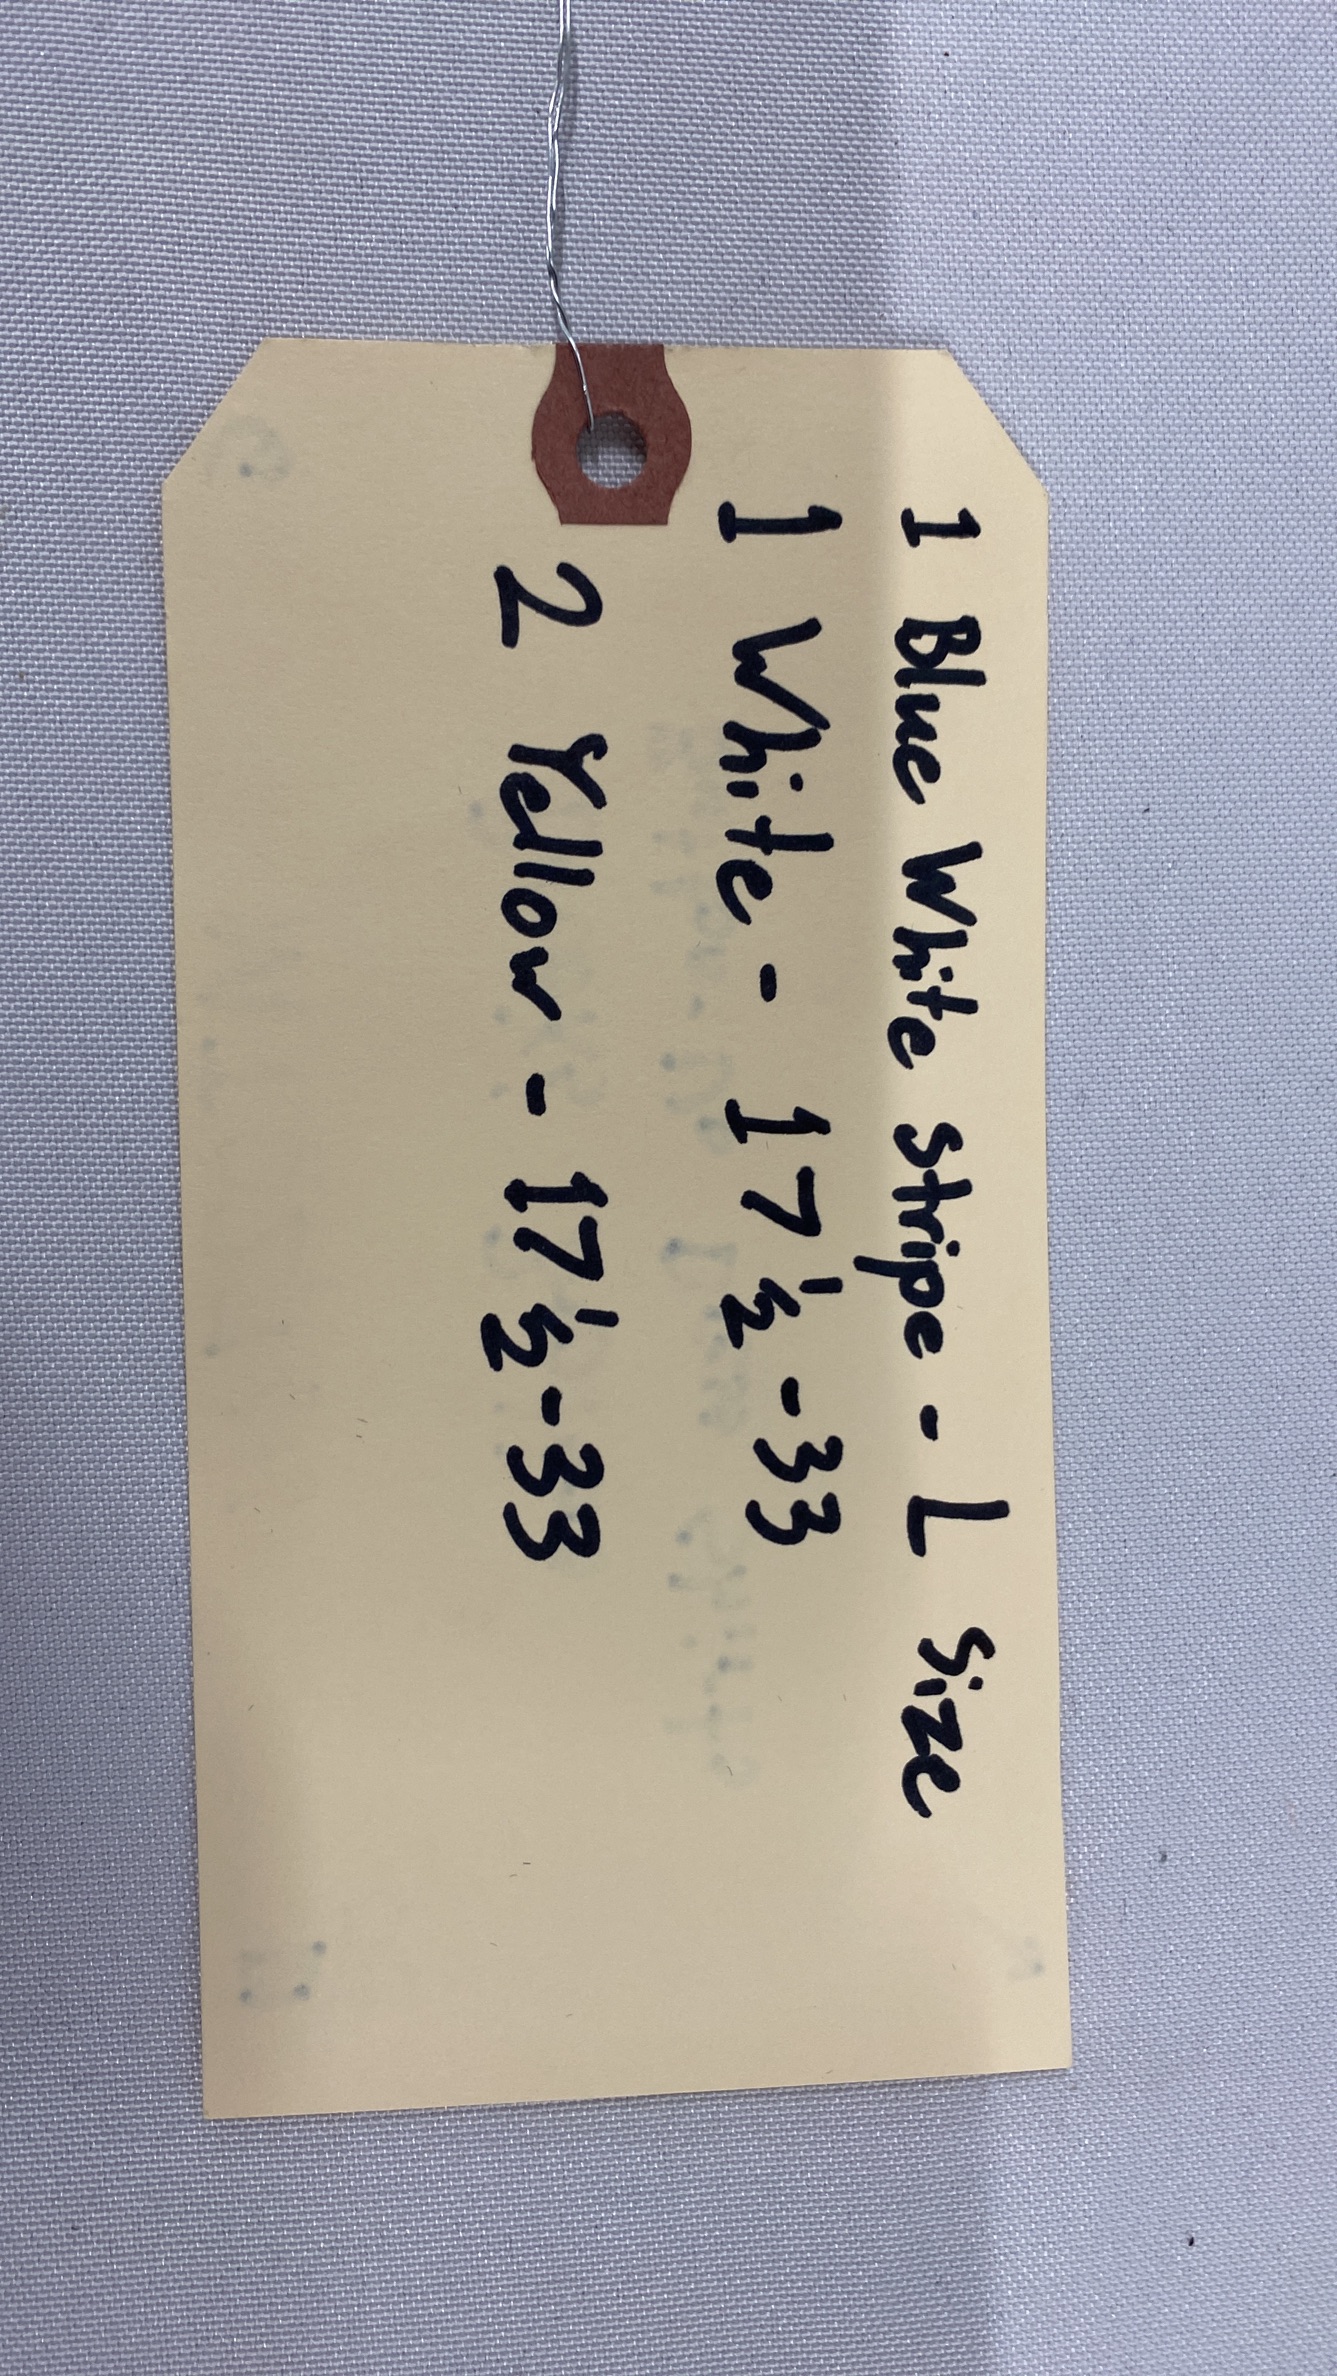 1 Blue White stripe - L size
1 White - 17 ½ - 33
2 Yellow - 17 ½ - 33